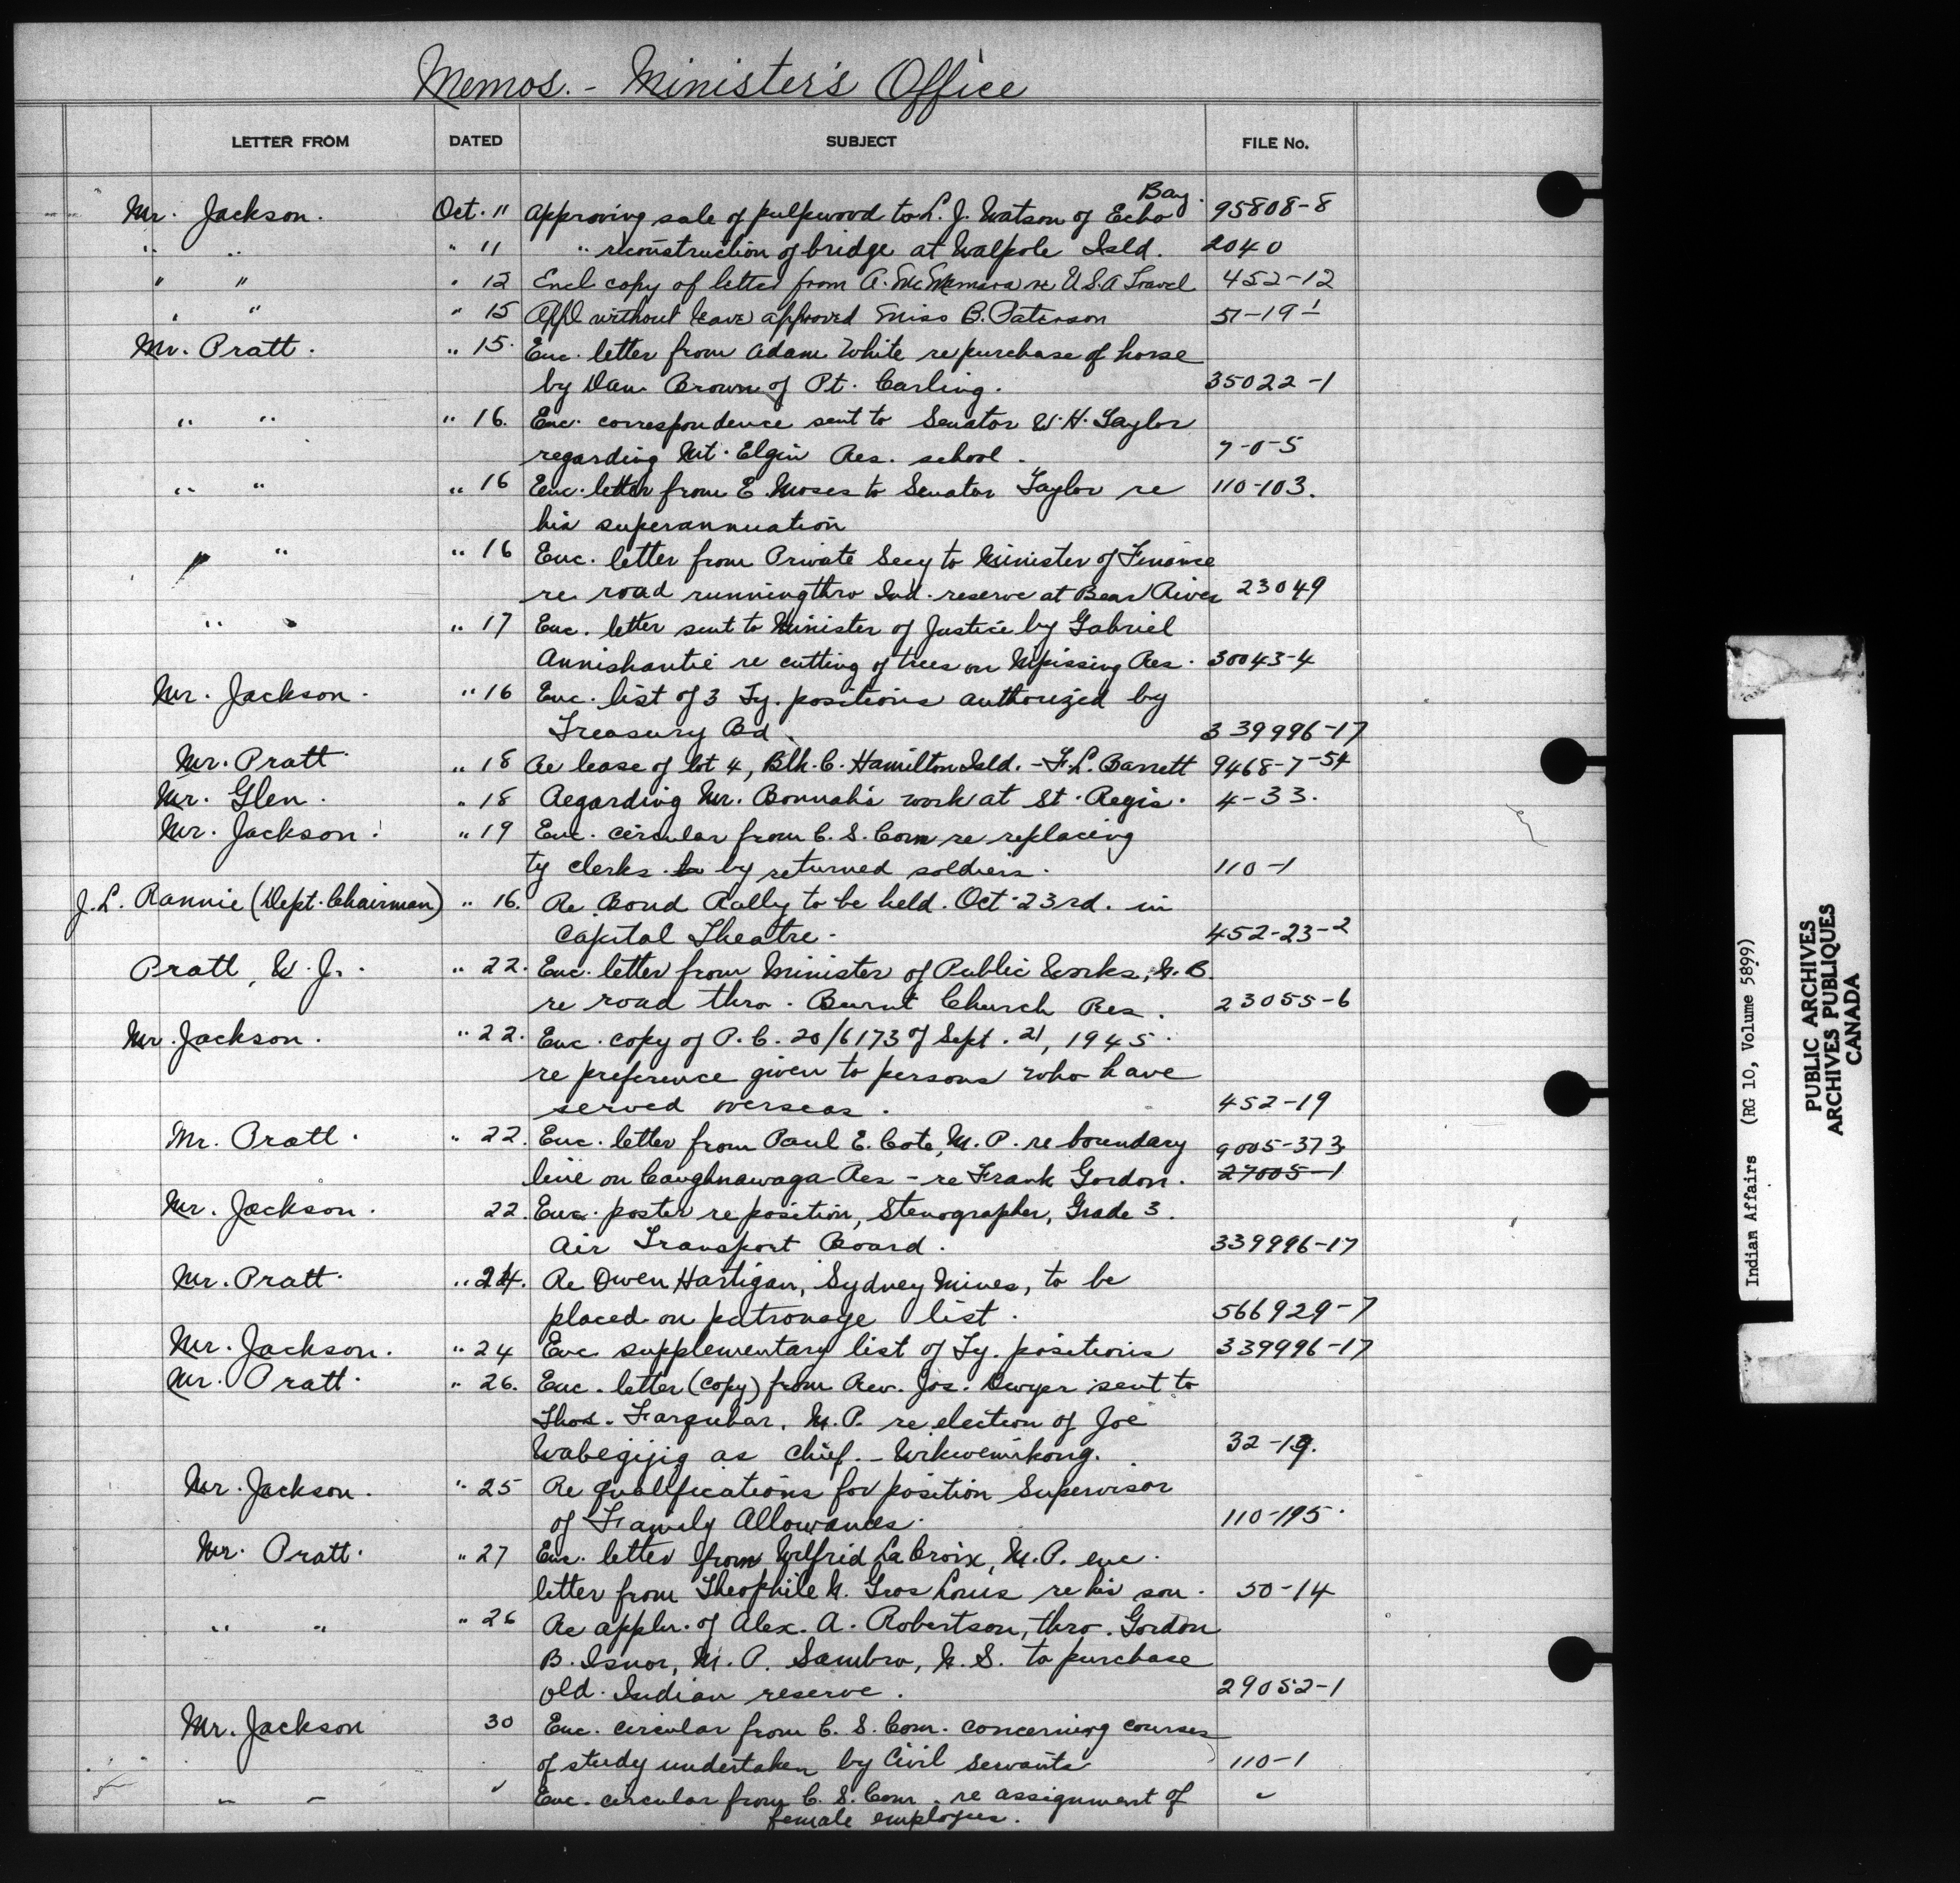 Memos. - Minister's Office
LETTER FROM DATED SUBJECT FILE No.
Mr. Jackson. Oct. 11 Approving sale of pulpwood to L. J. Watson of Echo Bay. 95808-8
" " " 11 " reconstruction of bridge at Walpole Isld. 2040
" " " 12 Encl copy of letter from A. McNamara re U.S.A Travel 452-12
" " " 15 Appl without leave approved Miss B. Paterson 51-19-1
Mr. Pratt. " 15. Enc. letter from Adam White re purchase of horse
by Dan Brown of Pt. Carling. 35022-1
" " " 16. Enc. correspondence sent to Senator W. H. Taylor
regarding Mt. Elgin Res. school. 7-0-5
" " " 16 Enc. letter from E. Moses to Senator Taylor re 110-103.
his superannuation
" " " 16 Enc. letter from Private Secy to Minister of Finance
re road running thro Ind. reserve at Bear River 23049
" " " 17 Enc. letter sent to Minister of Justice by Gabriel
Annishantie re cutting of trees on Nipissing Res. 30043-4
Mr. Jackson. " 16 Enc. list of 3 Ty. positions authorized by
Treasury Bd. 339996-17
Mr. Pratt. " 18 Re lease of lot 4, Blk. C. Hamilton Isld. - F. L. Barrett 9468-7-54
Mr. Glen. " 18 Regarding Mr. Bonnah's work at St. Regis. 4-33.
Mr. Jackson. " 19 Enc. circular from C. S. Com re replacing
ty clerks to by returned soldiers. 110-1
J. L. Rannie (Dept. Chairman) " 16. Re Bond Rally to be held. Oct. 23rd. in
Capital Theatre. 452-23-2
Pratt, W. J. " 22. Enc. letter from Minister of Public Works, N. B.
re road thro. Burnt Church Res. 23055-6
Mr. Jackson. " 22. Enc. copy of P. C. 20/6173 of Sept. 21, 1945.
re preference given to persons who have
served overseas. 452-19
Mr. Pratt. " 22. Enc. letter from Paul E. Cote, M. P. re boundary 9005-373
line on Caughnawaga Res - re Frank Gordon. 27005-1
Mr. Jackson. 22. Enc. poster re position, Stenographer, Grade 3.
Air Transport Board. 339996-17
Mr. Pratt. " 24. Re Owen Hartigan, Sydney Mines, to be
placed on patronage list. 566929-7
Mr. Jackson. " 24 Enc supplementary list of Ty. positions 339996-17
Mr. Pratt. " 26. Enc. letter (copy) from Rev. Jos. Dwyer sent to
Thos. Farquhar, M. P. re election of Joe
Wabegijig as Chief. - Wikwemikong. 32-19.
Mr. Jackson. " 25 Re qualifications for position Supervisor
of Family Allowances. 110-195.
Mr. Pratt. " 27 Enc. letter from Wilfrid LaCroix, M. P. enc.
letter from Theophile N. Gros Louis re his son. 50-14
" " " 26 Re appln. of Alex. A. Robertson, thro. Gordon
B. Isnor, M. P. Sambro, N. S. to purchase
old. Indian reserve. 29052-1
Mr. Jackson 30 Enc. circular from C. S. Com. concerning courses
of study undertaken by Civil Servants 110-1
" " " Enc. circular from C. S. Com. re assignment of "
female employees.
Indian Affairs (RG 10, Volume 5899)
PUBLIC ARCHIVES
ARCHIVES PUBLIQUES
CANADA